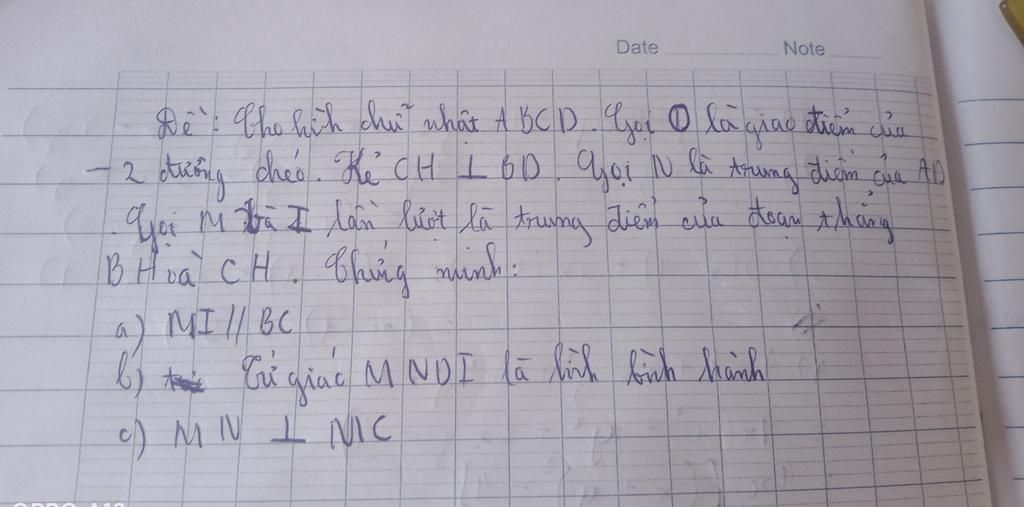 Date Note
Đề: Cho hình chữ nhật ABCD. Gọi O là giao điểm của
- 2 đường chéo. Kẻ CH ⊥ BD. Gọi N là trung điểm của AD
. Gọi M và I lần lượt là trung điểm của đoạn thẳng
BH và CH. Chứng minh:
a) MI // BC
b) Tứ giác MNDI là hình bình hành
c) MN ⊥ MC